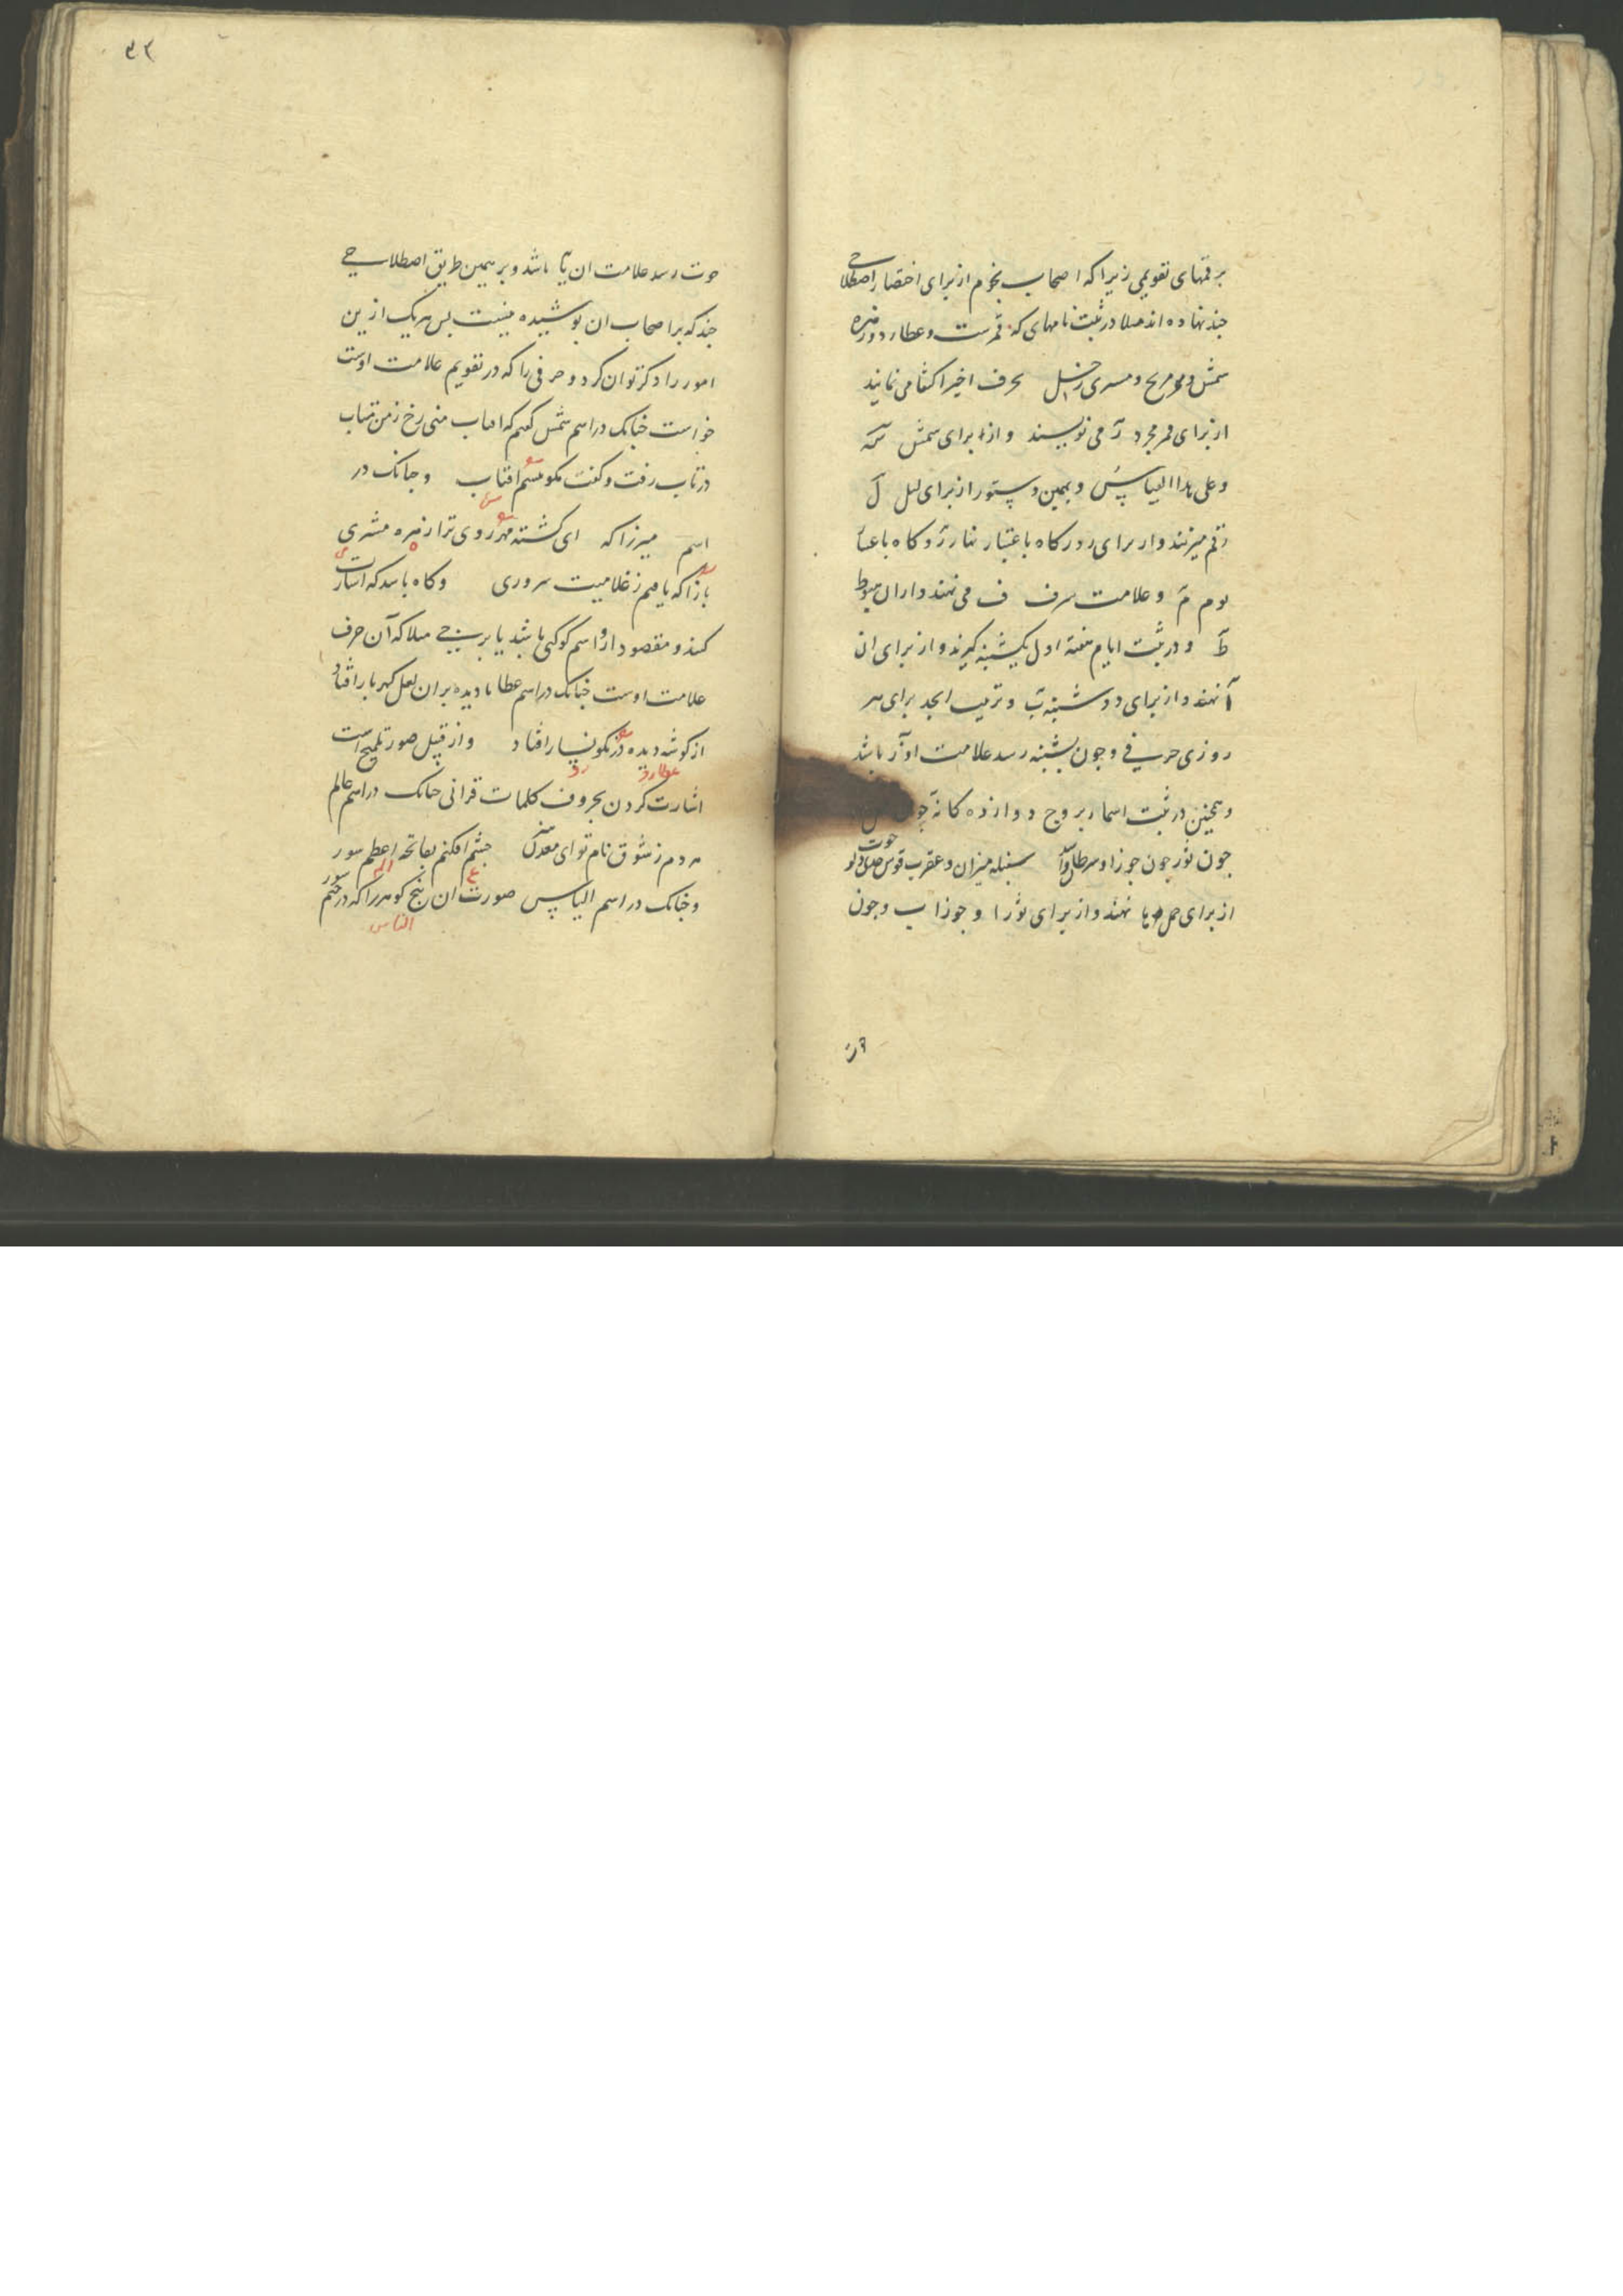 برقمهای تقویمی زیرا که اصحاب نجوم از برای اختصار اصطلاحی
چند نهاده اند مثلا در ثبت نامهای که قمرست و عطارد و زهره
شمس و مریخ و مشتری زحل بحرف اخیر اکتفا می نمایند
از برای قمر مجرد ر می نویسند و از برای شمس سه
و علی هذا القیاس و بهمین دستور از برای لیل ل
رقم میزنند و از برای روز کاه باعتبار نهار ر و کاه باعتبا
یوم م و علامت شرف ف می نهند و از ان هبوط
ط و در ثبت ایام هفته اول یکشنبه کیرند و از برای ان
آ نهند و از برای دوشنبه ب و ترتیب ابجد برای هر
روزی حرفی و چون بشنبه رسد علامت او ز باشد
و همچنین در ثبت اسماء بروج دوازده کانه
چون ثور چون جوزا و سرطان و اسد سنبله میزان و عقرب قوس جدی و دلو
حوت
از برای حمل یا نهند و از برای ثور ا و جوزا ب و چون
۴۳
حوت رسد علامت ان یا باشد و بر همین طریق اصطلاحی
چند که بر اصحاب ان پوشیده نیست پس هریک ازین
امور را ذکر توان کرد و حرفی را که در تقویم علامت اوست
خواست چنانک در اسم شمس کفتم که افتاب منی رخ ز من متاب
در تاب رفت و کفت مکو شمسم افتاب و چنانک در
اسم میرزا که ای کشته مهر روی ترا زهره مشتری
باز ا که یافتم ز غلامیت سروری و کاه باشد که اشارت
کنند و مقصود ازو اسم کوکبی باشد یا برجی مثلا که آن حرف
علامت اوست چنانک در اسم عطا تا دیده بران لعل کهربار افتاد
از کوشه دیده در نکونسار افتاد و از قبیل صور تلمیح است
عطارد رد
اشارت کردن بحروف کلمات قرانی چنانک در اسم عالم
مردم ز شوق نام تو ای معدن چشم افکنم بفاتحه اعظم سور
ع الم
و چنانک در اسم الیاس صورت ان پنج کوهر را که در ختم سور
الناس